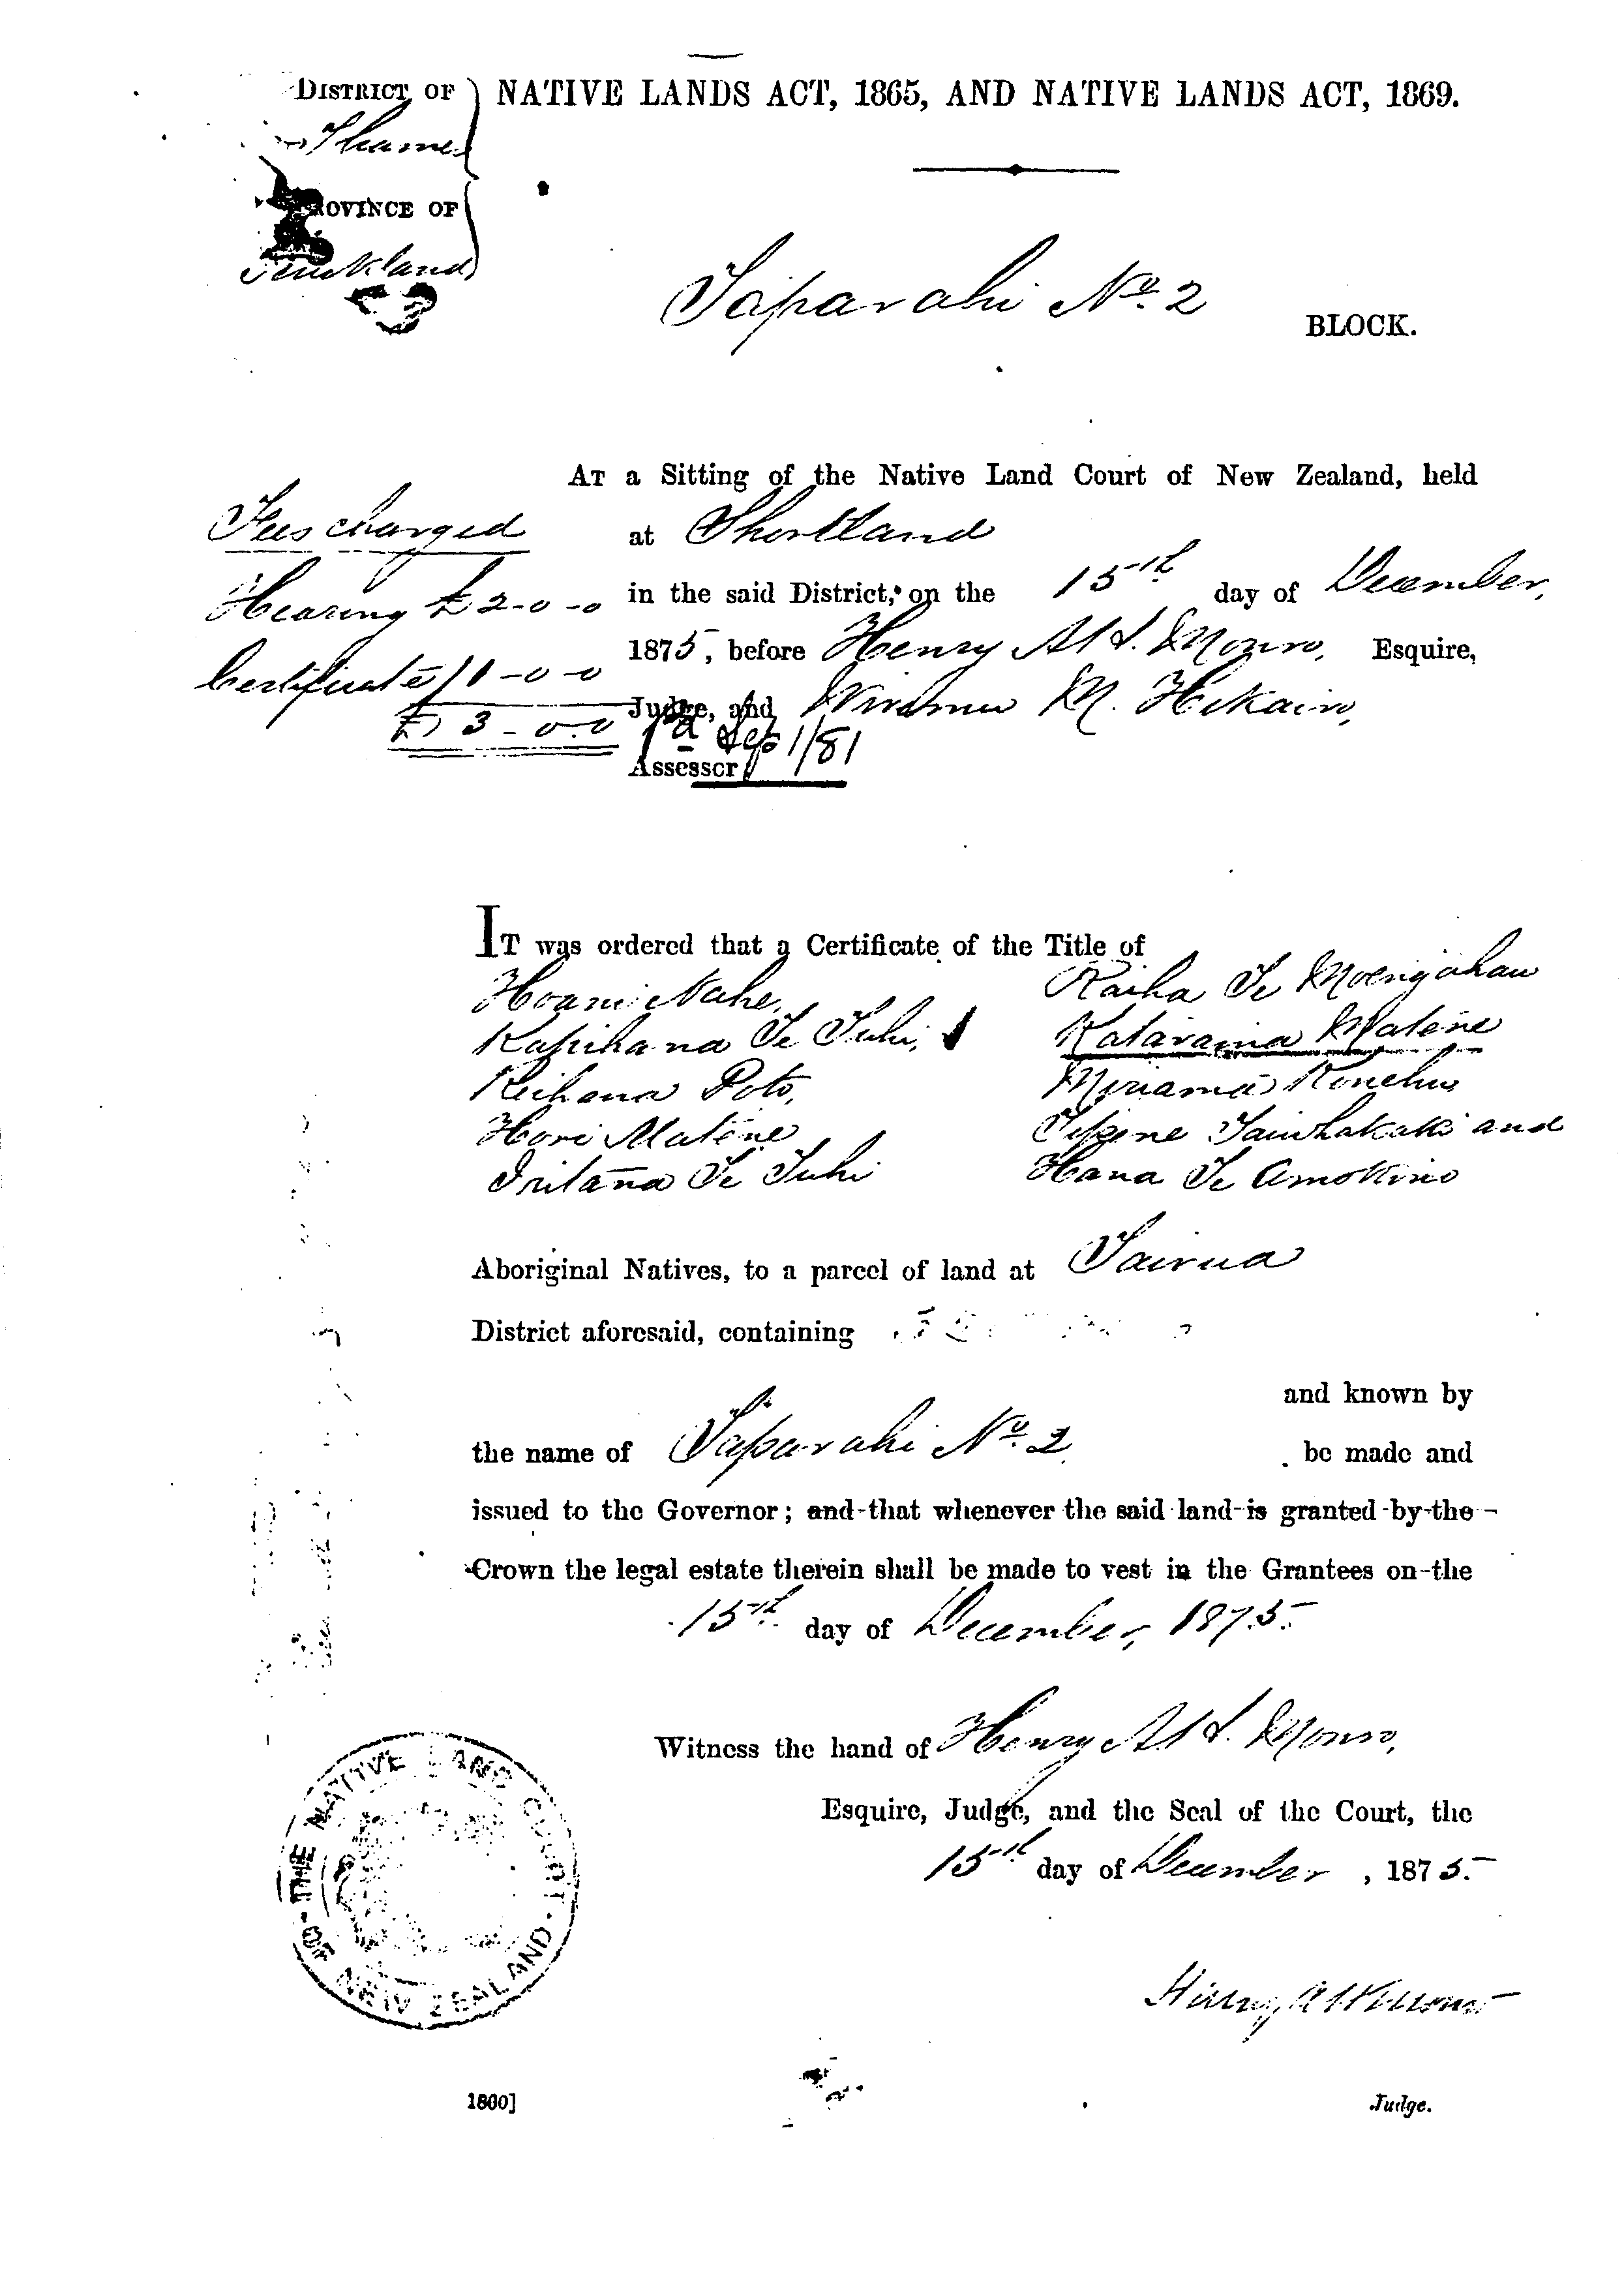 DISTRICT OF
Thames
PROVINCE OF
Auckland
NATIVE LANDS ACT, 1865, AND NATIVE LANDS ACT, 1869.
Taparahi No. 2 BLOCK.
AT a Sitting of the Native Land Court of New Zealand, held
at Shortland
in the said District, on the 15th day of December,
1875, before Henry A. H. Monro, Esquire,
Judge, and Wiremu Hikairo,
Assessor
Fees charged
Hearing £2-0-0
Certificate 1-0-0
£3-0-0
Pd Sep 1/81
IT was ordered that a Certificate of the Title of
Hoani Nahe,
Kapihana Te Tuhi,
Reihana Poto,
Hori Matene
Iritana Te Tuhi
Raiha Te Moengahau
Kataraina Matene
Miriama Konehu
Tipene Taiwhakaki and
Hana Te Amokino
Aboriginal Natives, to a parcel of land at Tairua
District aforesaid, containing
and known by
the name of Taparahi No. 2 be made and
issued to the Governor; and that whenever the said land is granted by the
Crown the legal estate therein shall be made to vest in the Grantees on the
15th day of December, 1875.
Witness the hand of Henry A. H. Monro,
Esquire, Judge, and the Seal of the Court, the
15th day of December, 1875.
THE NATIVE LAND COURT
OF NEW ZEALAND
Judge.